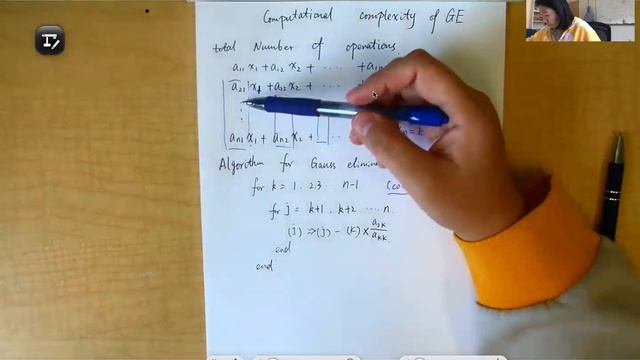 Computational complexity of GE
total Number of operations.
a11 x1 + a12 x2 + ...... + a1n
a21 x1 + a22 x2 + ......
an1 x1 + an2 x2 + ... = k
Algorithm for Gauss
for k = 1, 2, 3 ... n-1
for j = k+1, k+2 ..... n.
(j) ⇒ (j) - (k) × ajk/akk
end
end